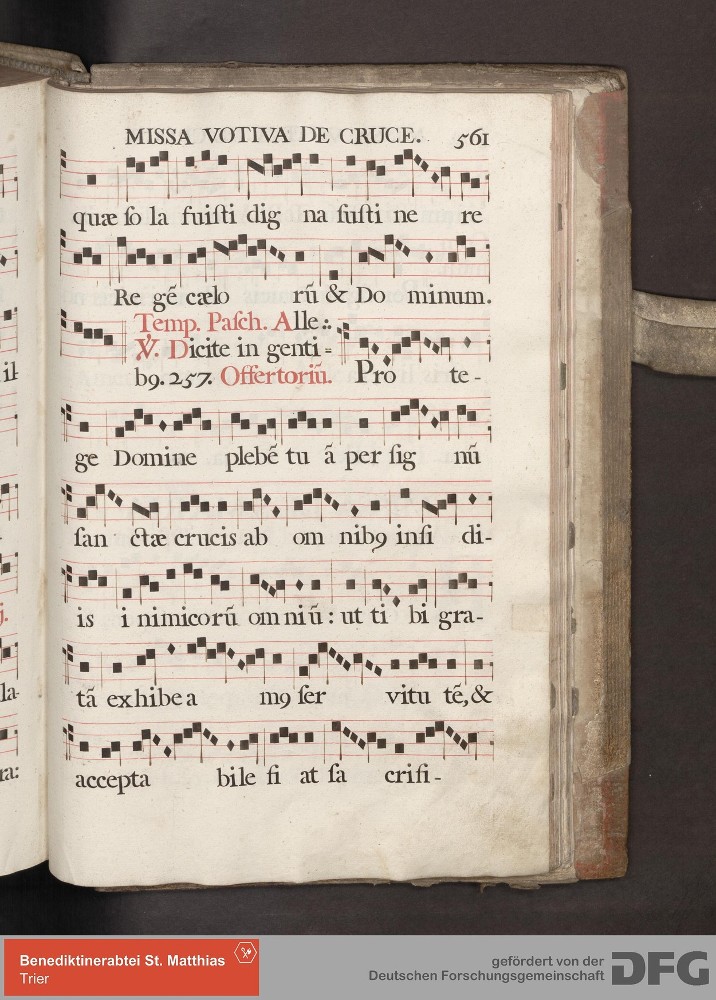 MISSA VOTIVA DE CRUCE. 561
quæ ſo la fuiſti dig na ſuſti ne re
Re gē cælo rū & Do minum.
Temp. Paſch. Alle:.
℣. Dicite in genti =
b9. 257. Offertoriū. Pro te-
ge Domine plebē tu ā per ſig nū
ſan ctæ crucis ab om nib9 inſi di-
is i nimicorū omniū : ut ti bi gra-
tā exhibea m9 ſer vitu tē, &
accepta bile fi at ſa crifi-
il
j.
la-
ra:
Benediktinerabtei St. Matthias
Trier
gefördert von der
Deutschen Forschungsgemeinschaft
DFG